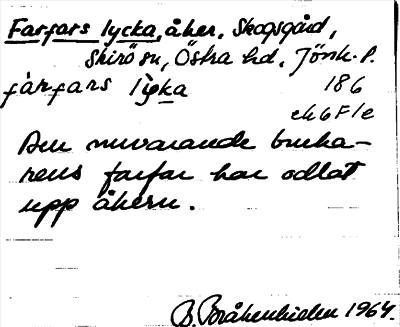 Farfars lycka, åker, Skogsgård,
Skirö sn, Östra hd, Jönk. l.
fàrfars lỳka 186
ek 6 F 1 e
Den nuvarande bruka-
rens farfar har odlat
upp åkern.
B. Bråkenhielm 1964.